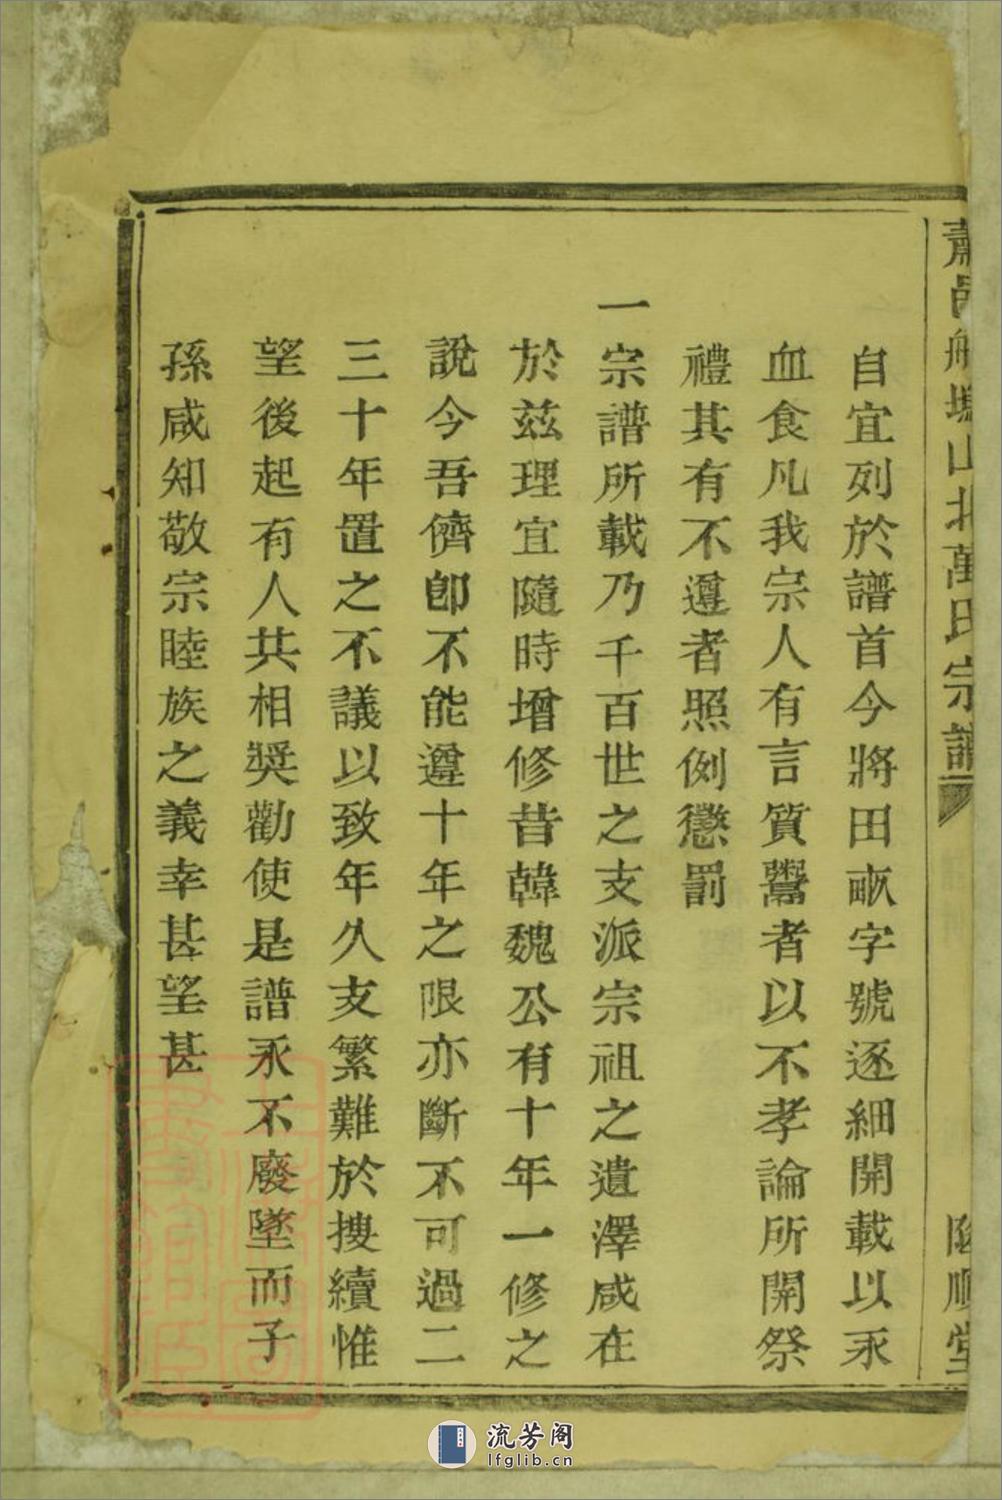 蕭邑航塢山北萬氏宗譜
順堂
自宜列於譜首今將田畝字號逐細開載以永
血食凡我宗人有言質鬻者以不孝論所開祭
禮其有不遵者照例懲罰
一宗譜所載乃千百世之支派宗祖之遺澤咸在
於茲理宜隨時增修昔韓魏公有十年一修之
說今吾儕卽不能遵十年之限亦斷不可過二
三十年置之不議以致年久支繁難於搜續惟
望後起有人共相奬勸使是譜永不廢墜而子
孫咸知敬宗睦族之義幸甚望甚
流芳阁
lfglib.cn